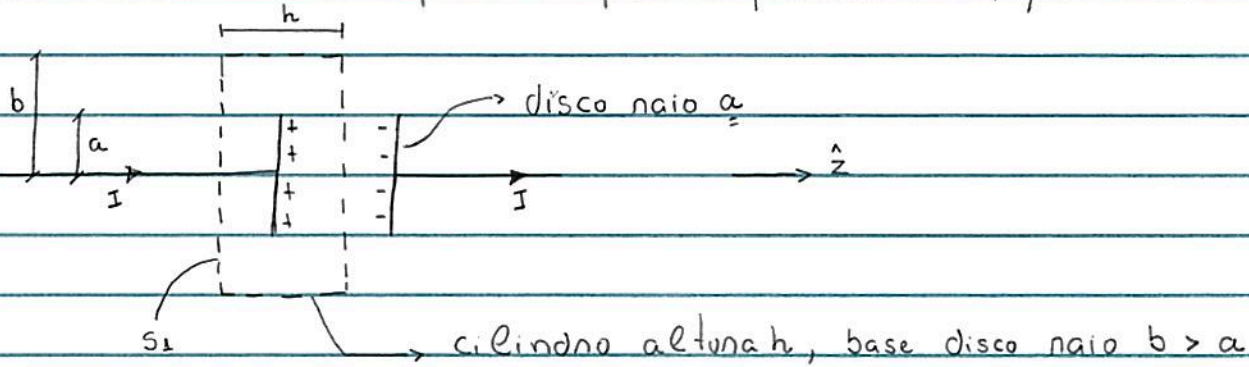 h
b
disco raio a
a
+ -
+ -
ẑ
I
I
+ -
+ -
S1
cilindro altura h, base disco raio b > a